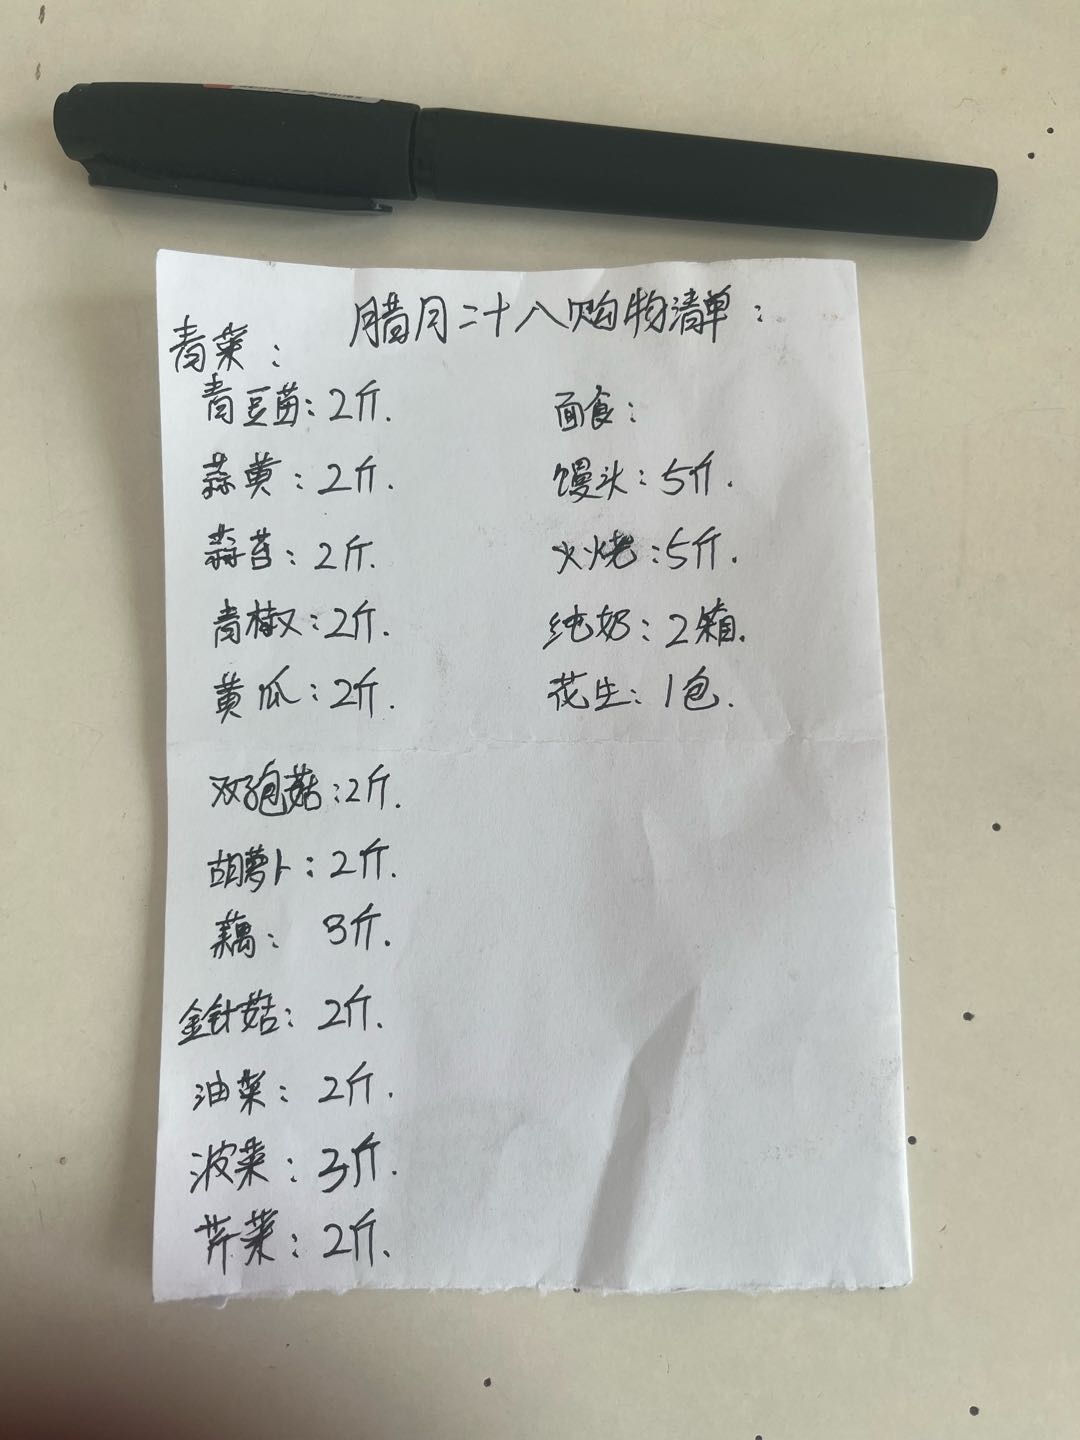 腊月二十八购物清单：
青菜：
青豆苗：2斤.
蒜黄：2斤.
蒜苔：2斤.
青椒：2斤.
黄瓜：2斤.
双孢菇：2斤.
胡萝卜：2斤.
藕： 3斤.
金针菇：2斤.
油菜：2斤.
波菜：3斤.
芹菜：2斤.
面食：
馒头：5斤.
火烧：5斤.
纯奶：2箱.
花生：1包.